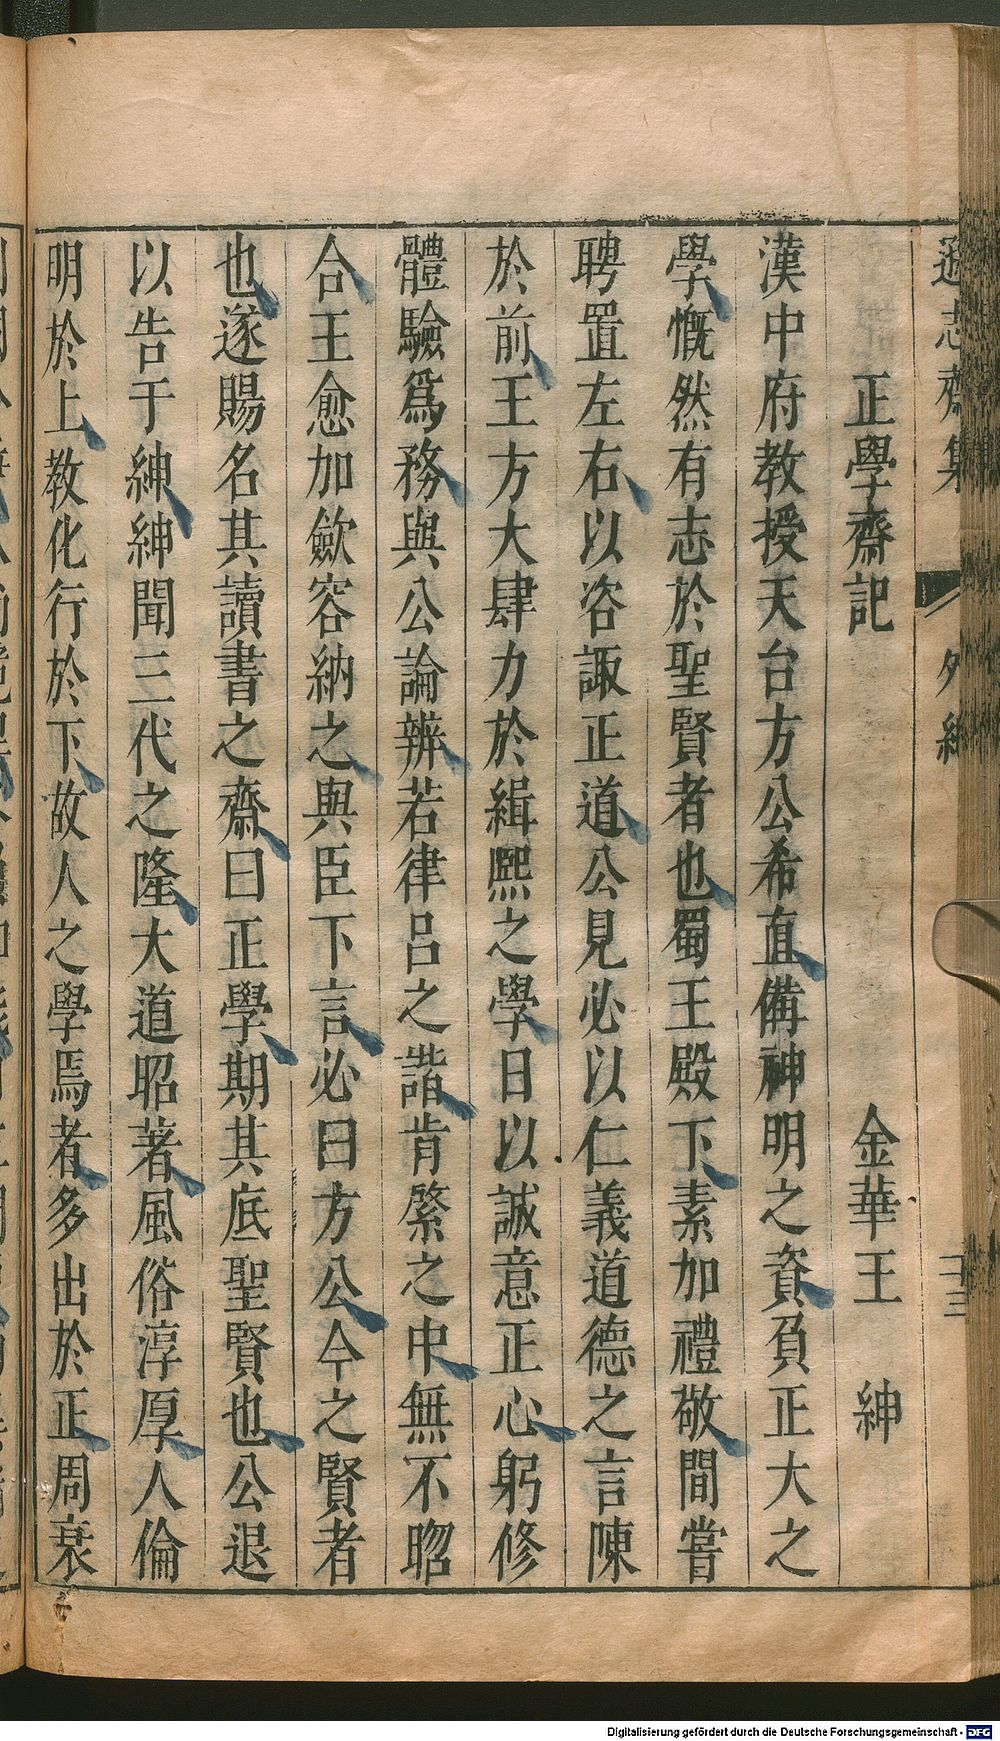 遜志齋集 外紀
正學齋記 金華王紳
漢中府教授天台方公希直備神明之資負正大之
學慨然有志於聖賢者也蜀王殿下素加禮敬間嘗
聘置左右以咨諏正道公見必以仁義道德之言陳
於前王方大肆力於緝熙之學日以誠意正心躬修
體驗爲務與公論辨若律呂之諧肯綮之中無不脗
合王愈加歛容納之與臣下言必曰方公今之賢者
也遂賜名其讀書之齋曰正學期其底聖賢也公退
以告于紳紳聞三代之隆大道昭著風俗淳厚人倫
明於上教化行於下故人之學焉者多出於正周衰
Digitalisierung gefördert durch die Deutsche Forschungsgemeinschaft - DFG